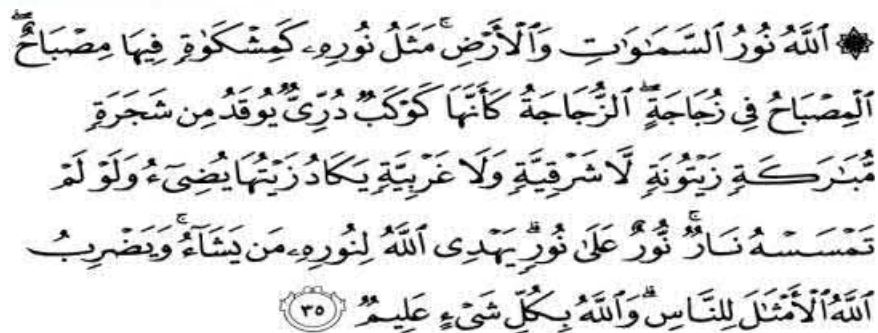 ۞ ٱللَّهُ نُورُ ٱلسَّمَٰوَٰتِ وَٱلْأَرْضِ ۚ مَثَلُ نُورِهِۦ كَمِشْكَوٰةٍ فِيهَا مِصْبَاحٌ ۖ
ٱلْمِصْبَاحُ فِى زُجَاجَةٍ ۖ ٱلزُّجَاجَةُ كَأَنَّهَا كَوْكَبٌ دُرِّىٌّ يُوقَدُ مِن شَجَرَةٍ
مُّبَٰرَكَةٍ زَيْتُونَةٍ لَّا شَرْقِيَّةٍ وَلَا غَرْبِيَّةٍ يَكَادُ زَيْتُهَا يُضِىٓءُ وَلَوْ لَمْ
تَمْسَسْهُ نَارٌ ۚ نُّورٌ عَلَىٰ نُورٍ ۗ يَهْدِى ٱللَّهُ لِنُورِهِۦ مَن يَشَآءُ ۚ وَيَضْرِبُ
ٱللَّهُ ٱلْأَمْثَٰلَ لِلنَّاسِ ۗ وَٱللَّهُ بِكُلِّ شَىْءٍ عَلِيمٌ ٣٥